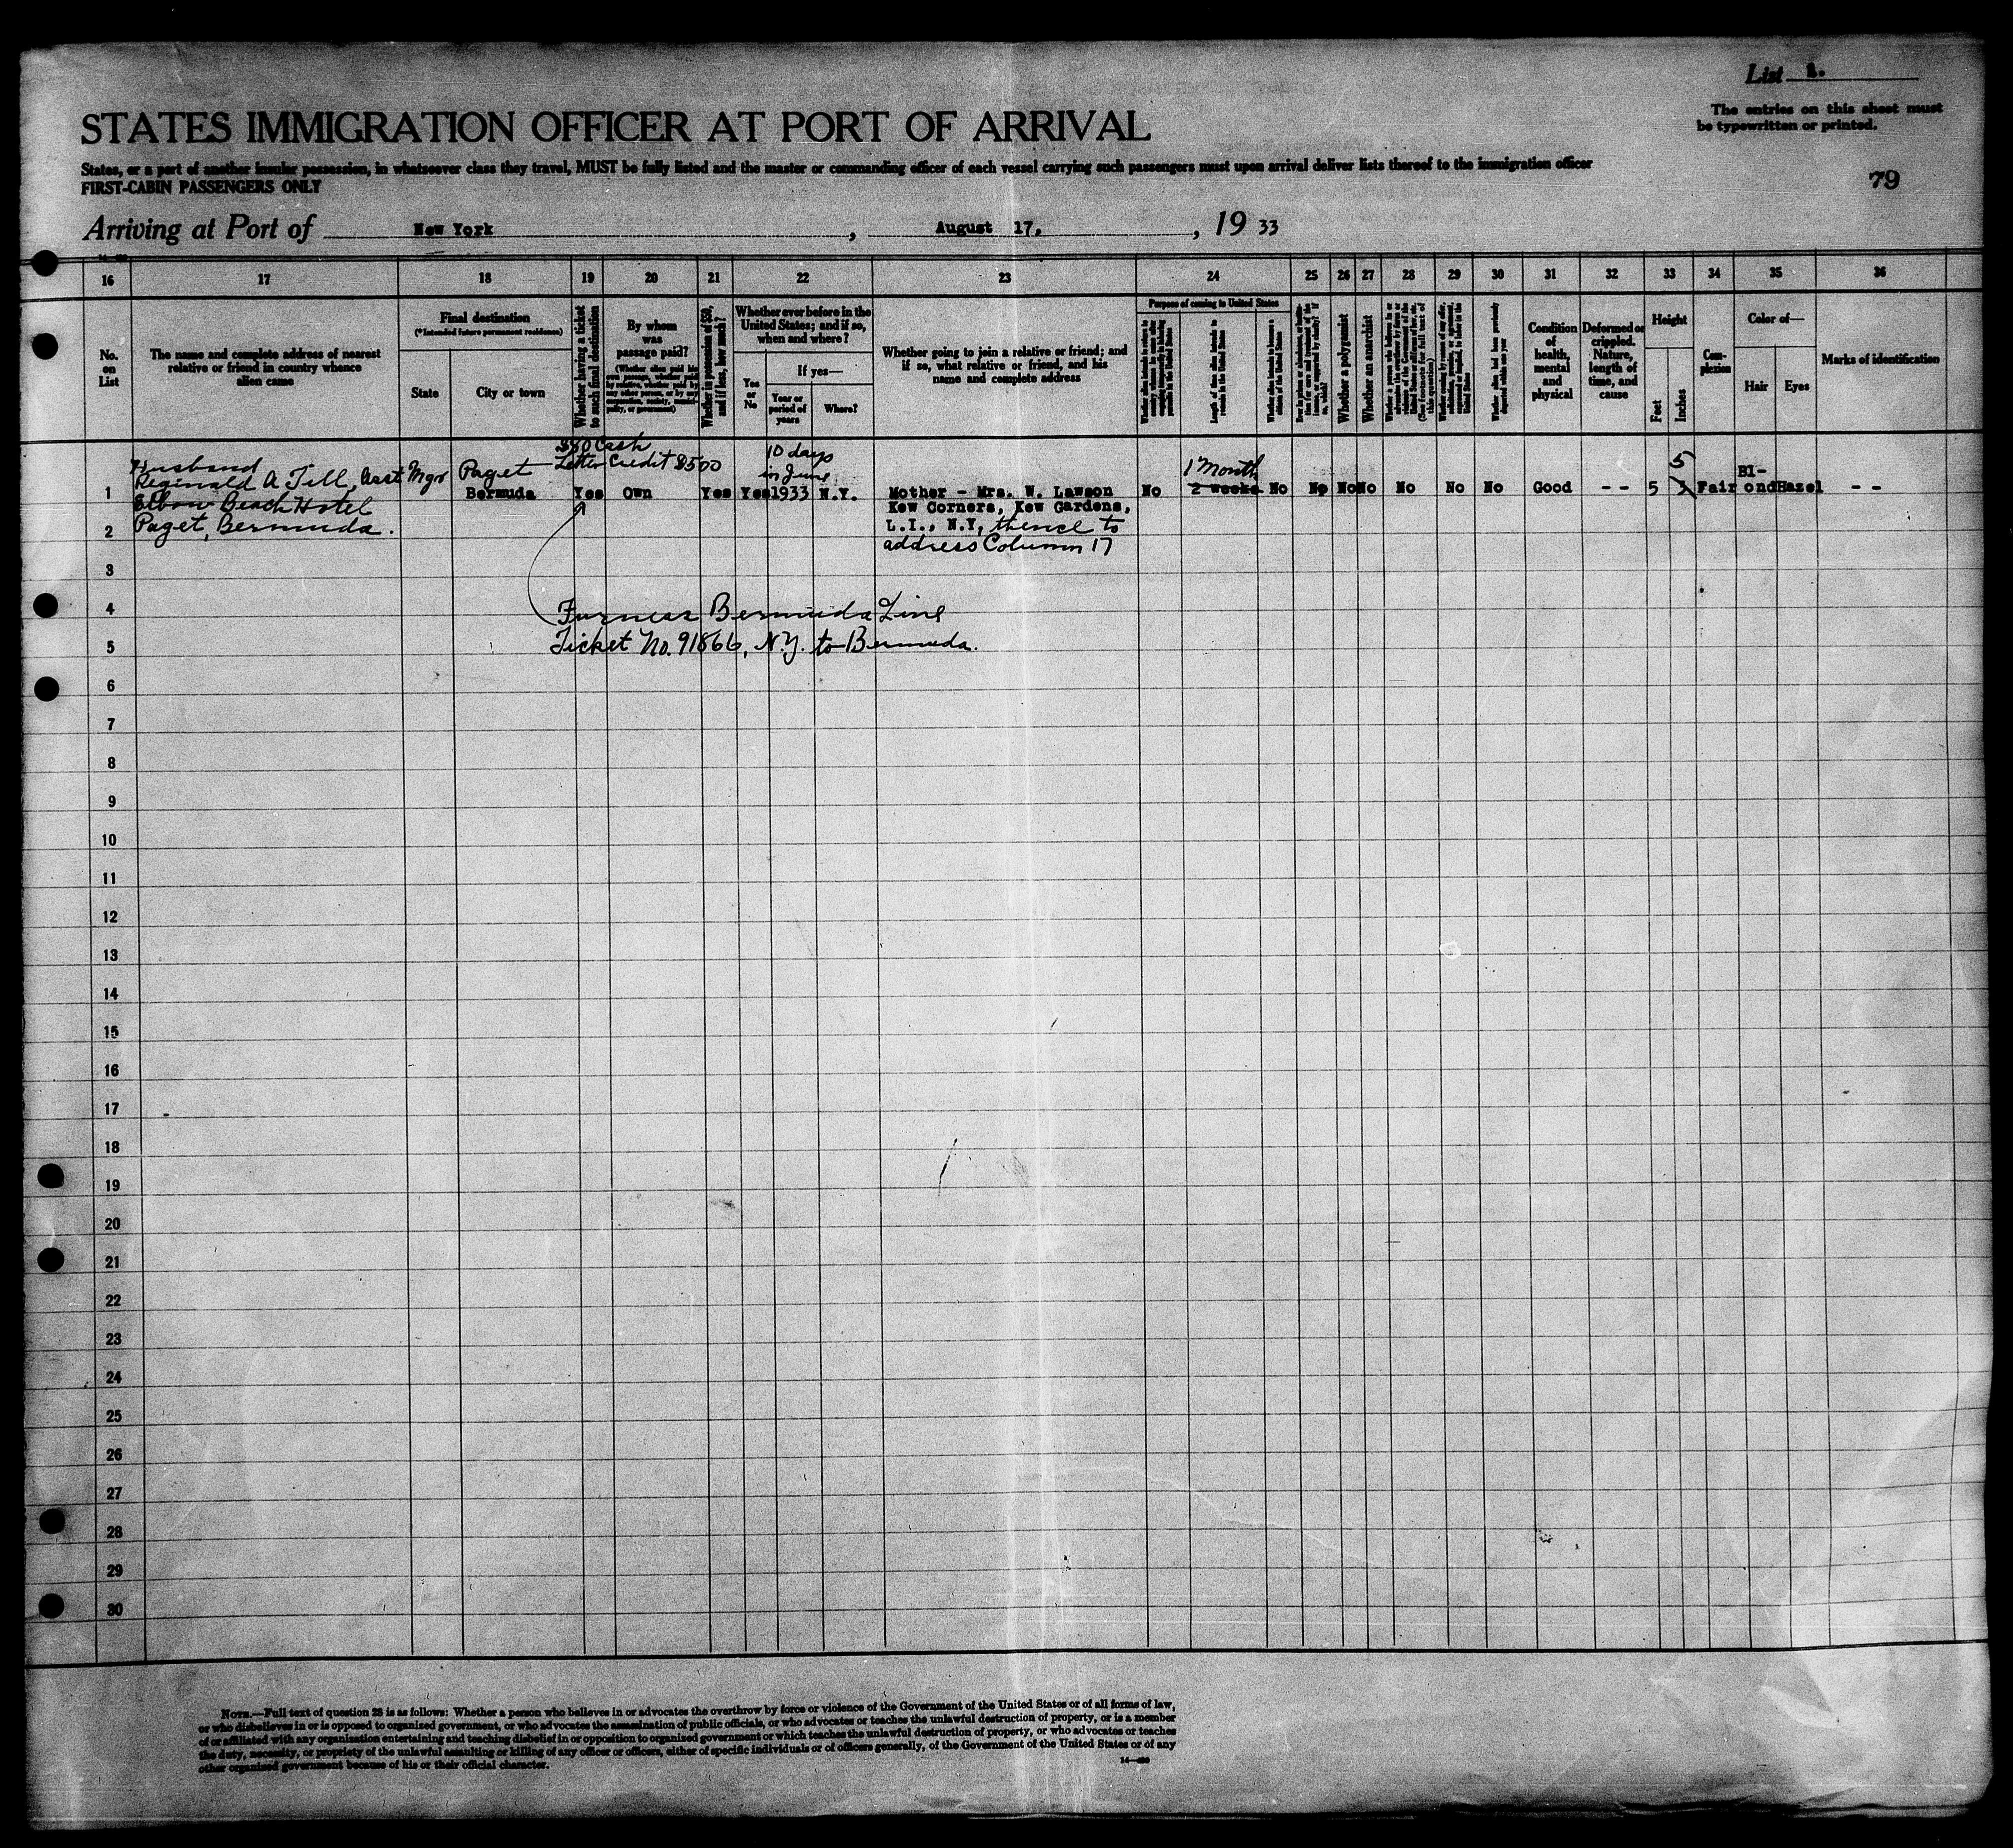 List 1.
The entries on this sheet must
be typewritten or printed.
STATES IMMIGRATION OFFICER AT PORT OF ARRIVAL
States, or a port of another insular possession, in whatsoever class they travel, MUST be fully listed and the master or commanding officer of each vessel carrying such passengers must upon arrival deliver lists thereof to the immigration officer
FIRST-CABIN PASSENGERS ONLY
79
Arriving at Port of New York, August 17, 19 33
16 17 18 19 20 21 22 23 24 25 26 27 28 29 30 31 32 33 34 35 36
No.
on
List
The name and complete address of nearest
relative or friend in country whence
alien came
Final destination
(*Intended future permanent residence)
State
City or town
Whether having a ticket
to such final destination
By whom
was
passage paid?
Whether in possession of $50,
and if less, how much?
Whether ever before in the
United States; and if so,
when and where?
Yes
or
No
If yes—
Year or
period of
years
Where?
Whether going to join a relative or friend; and
if so, what relative or friend, and his
name and complete address
Purpose of coming to United States
Length of time alien intends to
remain in the United States
Whether a polygamist
Whether an anarchist
Condition
of
health,
mental
and
physical
Deformed or
crippled.
Nature,
length of
time, and
cause
Height
Feet
Inches
Com-
plexion
Color of—
Hair
Eyes
Marks of identification
$80 Cash
Letter Credit $500
10 days
in June
1 Month
5
Husband
Reginald A Till, asst Mgr
Elbow Beach Hotel
Paget, Bermuda.
Paget
1 Bermuda Yes Own Yes Yes 1933 N.Y. Mother - Mrs. W. Lawson No 2 weeks No No No No No No No Good - - 5 Fair Bl-ond Hazel - -
Kew Corners, Kew Gardens,
L.I., N.Y, thence to
address Column 17
2
3
4
Furness Bermuda Line
Ticket No. 91866, N.Y. to Bermuda.
5
6
7
8
9
10
11
12
13
14
15
16
17
18
19
20
21
22
23
24
25
26
27
28
29
30
NOTE.—Full text of question 28 is as follows: Whether a person who believes in or advocates the overthrow by force or violence of the Government of the United States or of all forms of law,
or who disbelieves in or is opposed to organized government, or who advocates the assassination of public officials, or who advocates or teaches the unlawful destruction of property, or is a member
of or affiliated with any organization entertaining and teaching disbelief in or opposition to organized government or which teaches the unlawful destruction of property, or who advocates or teaches
the duty, necessity, or propriety of the unlawful assaulting or killing of any officer or officers, either of specific individuals or of officers generally, of the Government of the United States or of any
other organized government because of his or their official character.